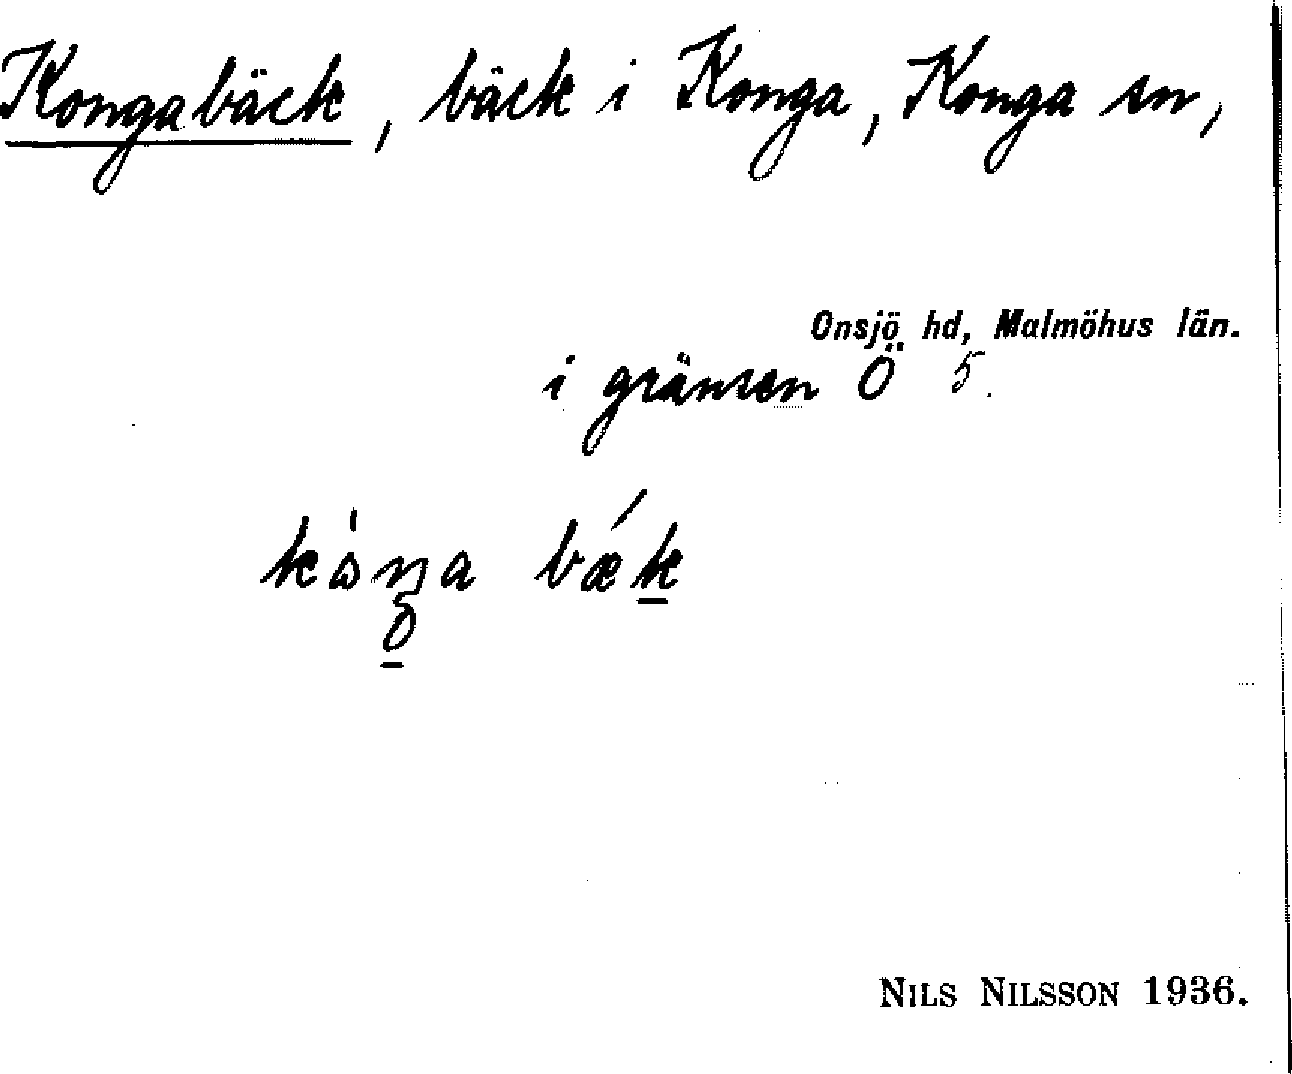 Kongabäck, bäck i Konga, Konga sn,
Onsjö hd, Malmöhus län.
i gränsen Ö 5.
bǽk
NILS NILSSON 1936.